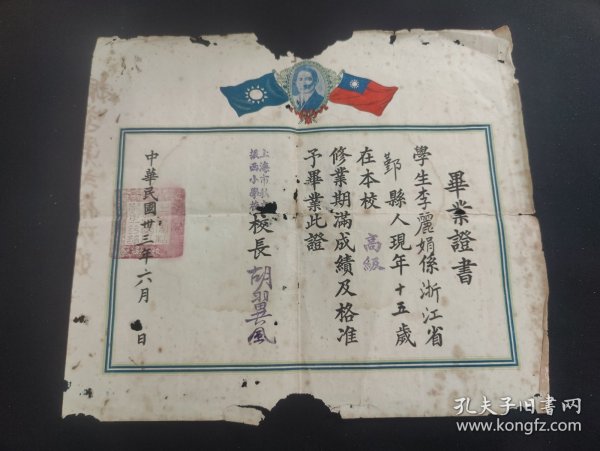 畢業證書
學生李麗娟係浙江省
鄞縣人現年十五歲
在本校高級
修業期滿成績及格准
予畢業此證
上海市
振西小學校
校長胡翼風
中華民國卅三年六月 日
孔夫子旧书网
www.kongfz.com